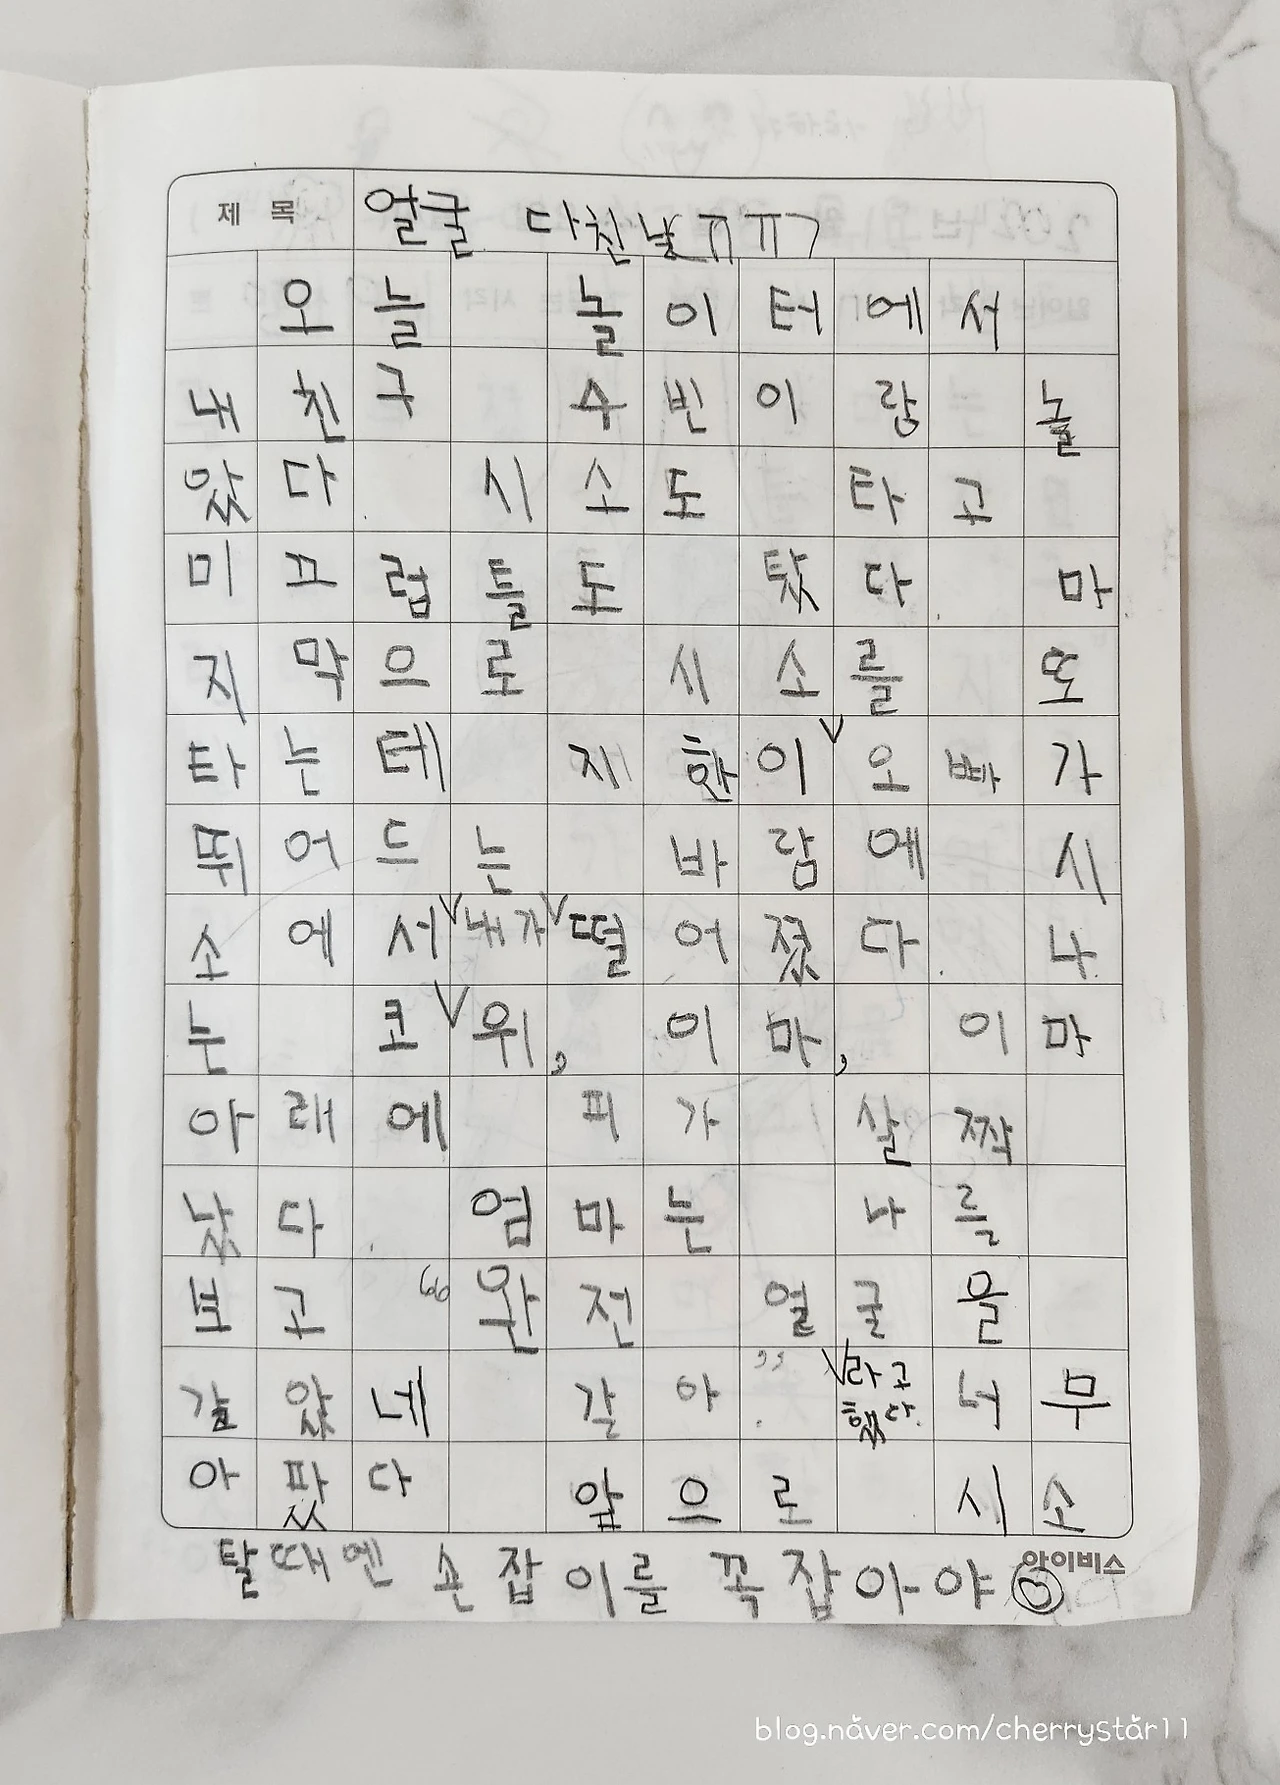 제 목 얼굴 다친날ㅠㅠㄱ
오늘 놀이터에서
내친구 수빈이랑 놀
았다 시소도 타고
미끄럽틀도 탔다. 마
지막으로 시소를 또
타는데 지환이 오빠가
뛰어드는 바람에 시
소에서 내가 떨어졌다. 나
는 코 위, 이마, 이마
아래에 피가 살짝
났다. 엄마는 나를
보고 "완전 얼굴을
갈았네 갈아." 라고 했다. 너무
아팠다 앞으로 시소
탈때엔 손잡이를 꼭 잡아야
아이비스
blog.naver.com/cherrystar11